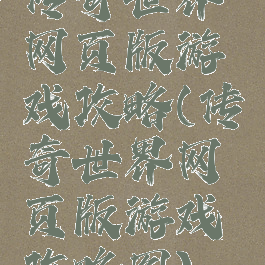 传奇世界
网页版游
戏攻略(传
奇世界网
页版游戏
攻略图)